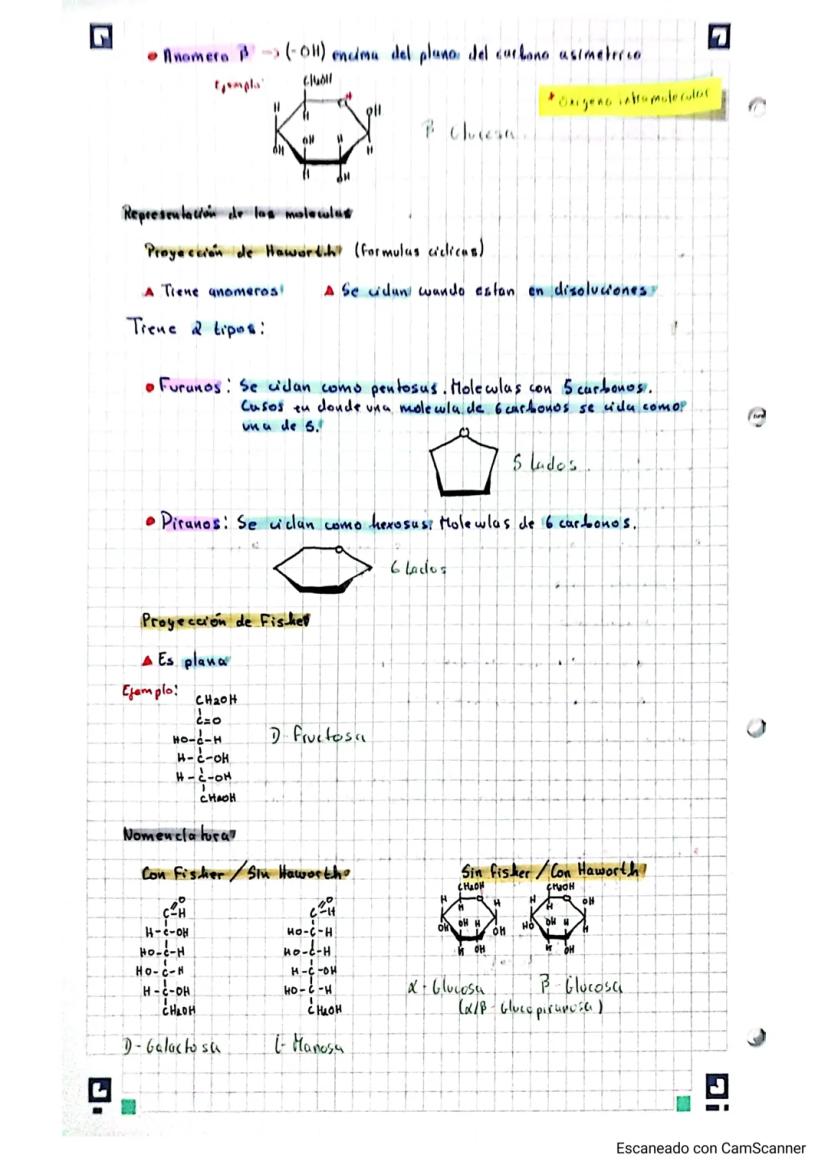 • Anomero β → (-OH) encima del plano del carbono asimetrico
Ejemplo:
CH2OH
H
H
OH
OH
H
OH
H
H
OH
β Glucosa
* Oxigeno intramolecular
Representación de las moleculas
Proyección de Haworth (Formulas ciclicas)
▲ Tiene anomeros
▲ Se ciclan cuando estan en disoluciones
Tiene 2 tipos:
• Furanos: Se ciclan como pentosas. Moleculas con 5 carbonos.
Casos en donde una molecula de 6 carbonos se cicla como
una de 5.
O
5 lados
• Piranos: Se ciclan como hexosas: Moleculas de 6 carbonos.
O
6 Lados
Proyección de Fisher
▲ Es plana
Ejemplo:
CH2OH
C=O
HO-C-H
D-Fructosa
H-C-OH
H-C-OH
CH2OH
Nomenclatura
Con Fisher / Sin Haworth
Sin fisher / Con Haworth
O
C-H
H-C-OH
HO-C-H
HO-C-H
H-C-OH
CH2OH
D-Galactosa
O
C-H
HO-C-H
HO-C-H
H-C-OH
HO-C-H
CH2OH
L-Manosa
CH2OH
H
O
H
H
OH
OH
H
OH
H
OH
α-Glucosa
CH2OH
H
O
OH
H
HO
OH
H
H
H
OH
β-Glucosa
(α/β-Glucopiranosa)
Escaneado con CamScanner